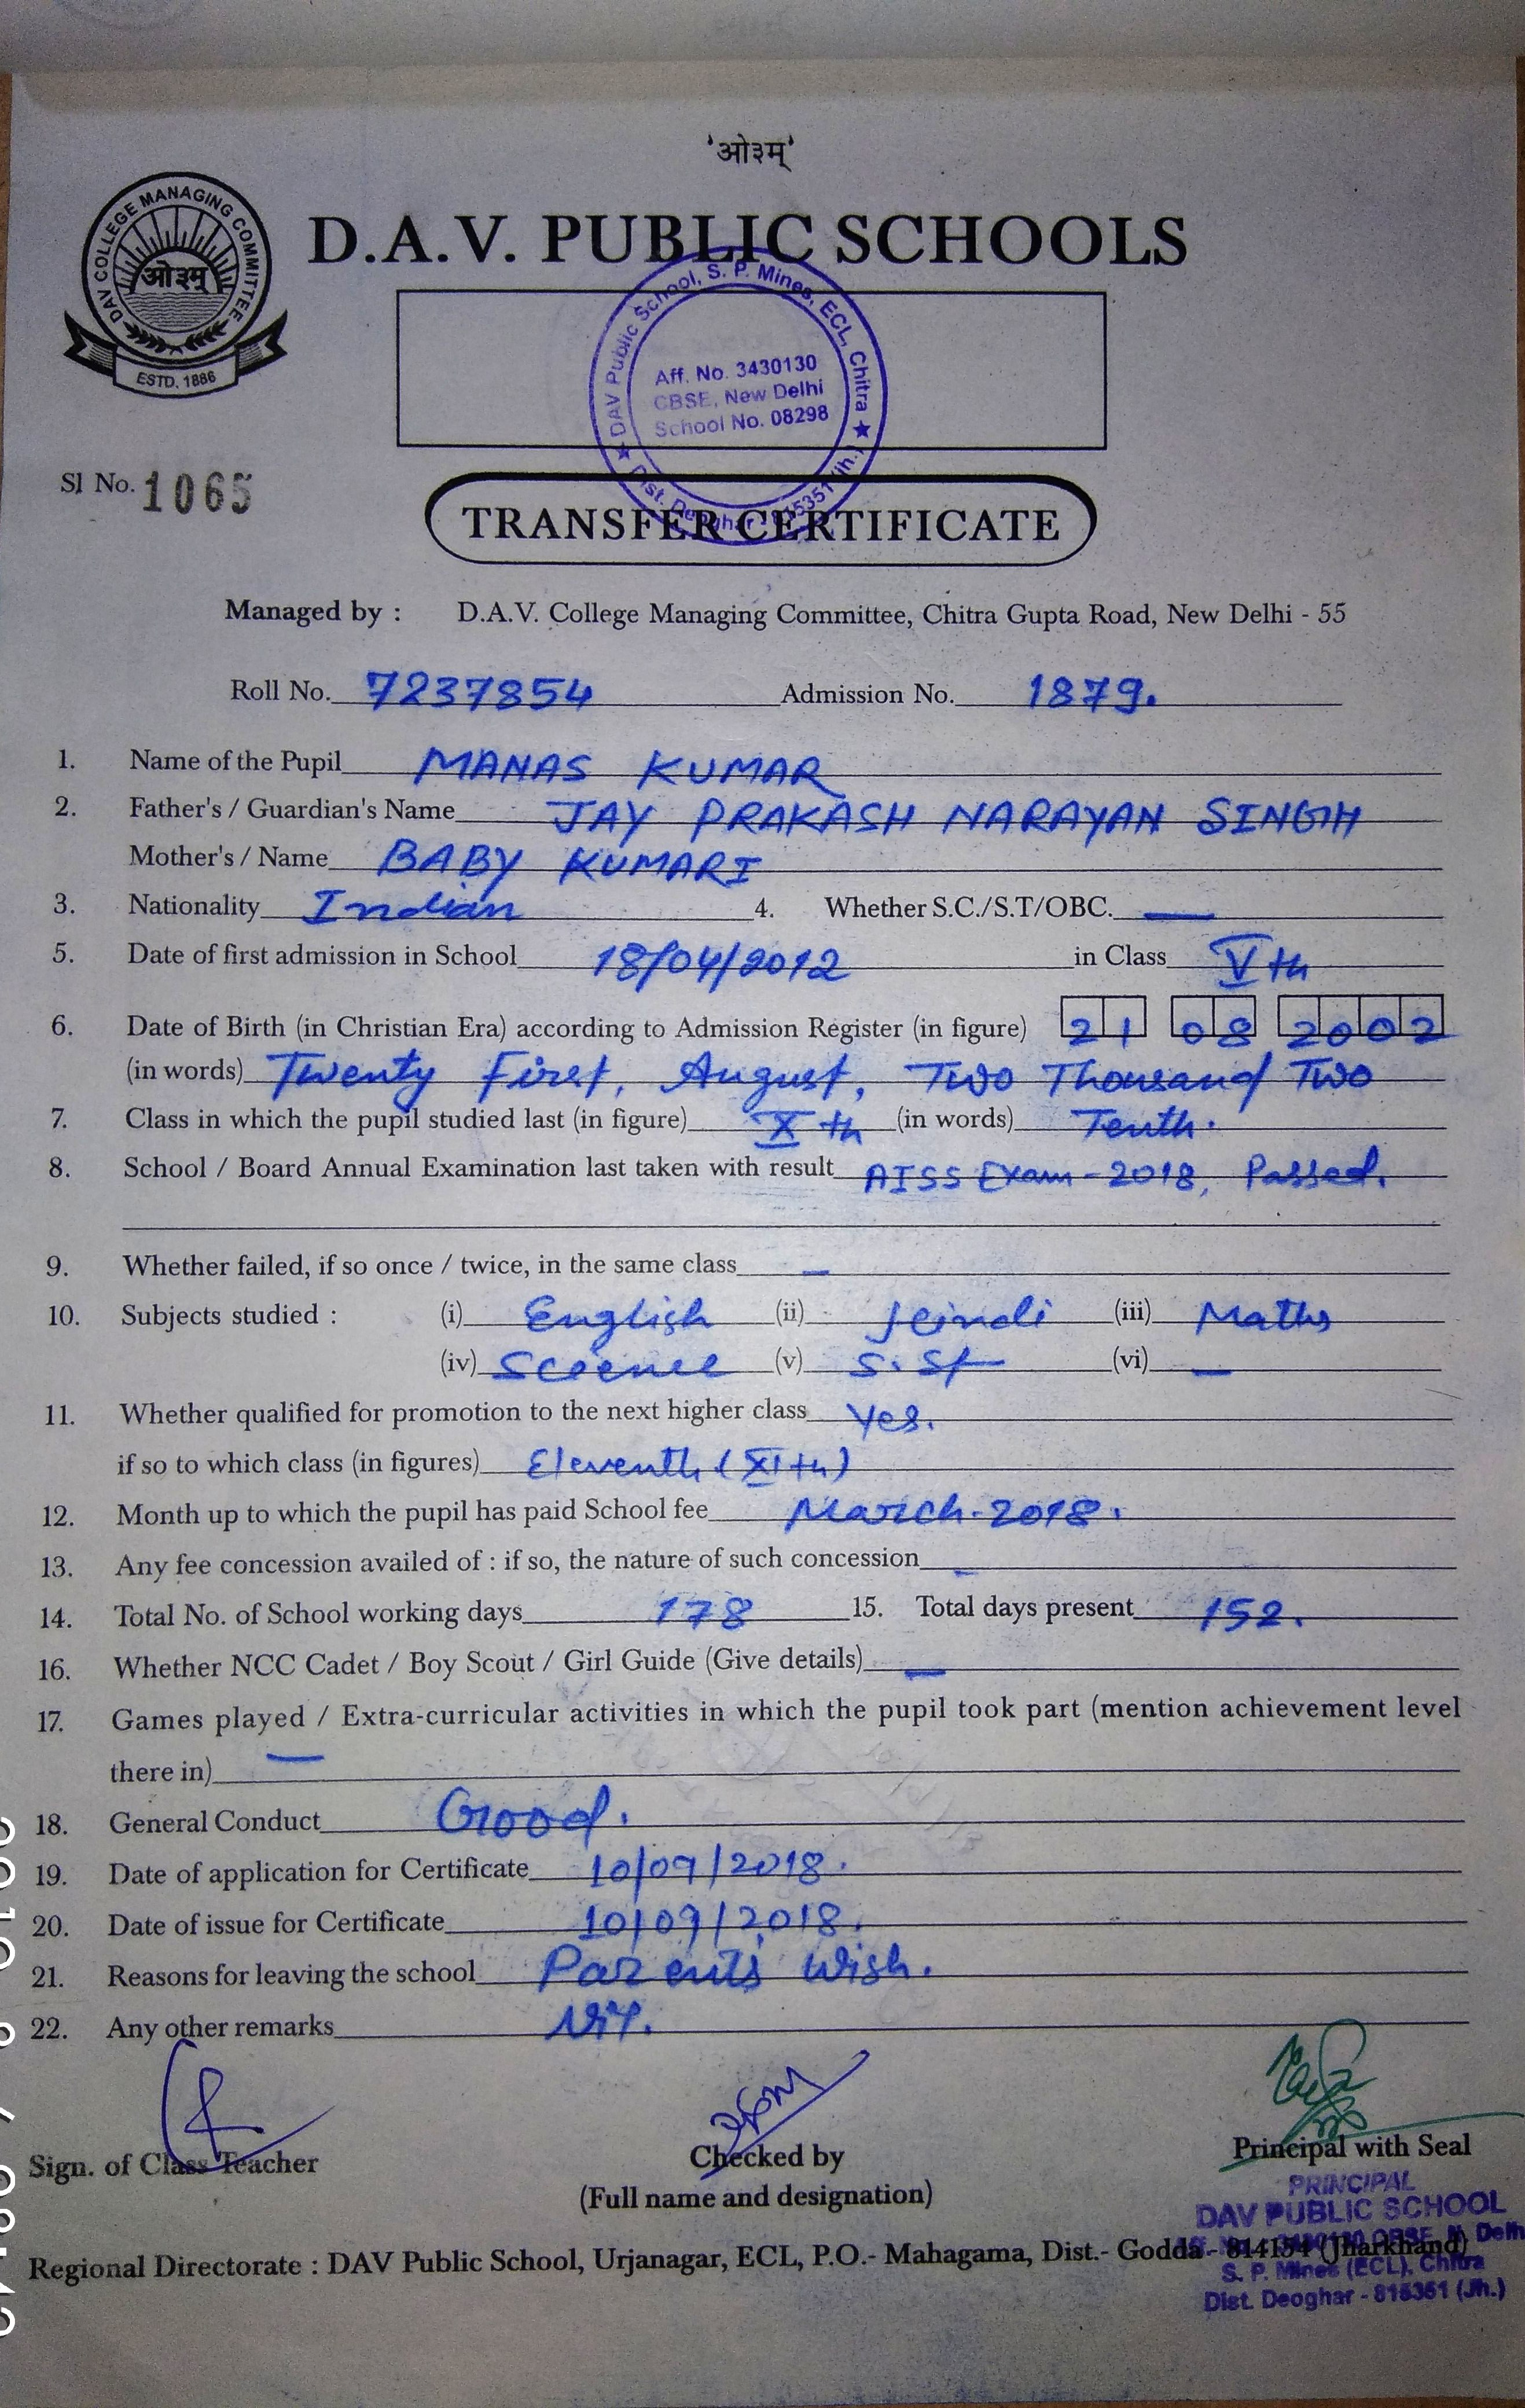 'ओ३म्'
DAV COLLEGE MANAGING COMMITTEE
ओ३म्
ESTD. 1886
D.A.V. PUBLIC SCHOOLS
DAV Public School, S. P. Mines, ECL, Chitra
Aff. No. 3430130
CBSE, New Delhi
School No. 08298
Dist. Deoghar 815351 (Jh.)
Sl No. 1065
TRANSFER CERTIFICATE
Managed by : D.A.V. College Managing Committee, Chitra Gupta Road, New Delhi - 55
Roll No. 7237854 Admission No. 1879.
1. Name of the Pupil MANAS KUMAR
2. Father's / Guardian's Name JAY PRAKASH NARAYAN SINGH
Mother's / Name BABY KUMARI
3. Nationality Indian 4. Whether S.C./S.T/OBC. —
5. Date of first admission in School 18/04/2012 in Class Vth
6. Date of Birth (in Christian Era) according to Admission Register (in figure) 21 08 2002
(in words) Twenty First, August, Two Thousand Two
7. Class in which the pupil studied last (in figure) Xth (in words) Tenth.
8. School / Board Annual Examination last taken with result AISS Exam-2018, Passed.
9. Whether failed, if so once / twice, in the same class —
10. Subjects studied : (i) English (ii) Hindi (iii) Maths
(iv) Science (v) S.St (vi) —
11. Whether qualified for promotion to the next higher class Yes.
if so to which class (in figures) Eleventh (XIth)
12. Month up to which the pupil has paid School fee March-2018.
13. Any fee concession availed of : if so, the nature of such concession —
14. Total No. of School working days 178 15. Total days present 152.
16. Whether NCC Cadet / Boy Scout / Girl Guide (Give details) —
17. Games played / Extra-curricular activities in which the pupil took part (mention achievement level
there in) —
18. General Conduct Good.
19. Date of application for Certificate 10/07/2018.
20. Date of issue for Certificate 10/07/2018.
21. Reasons for leaving the school Parents' Wish.
22. Any other remarks Nil.
Sign. of Class Teacher Checked by Principal with Seal
(Full name and designation)
PRINCIPAL
DAV PUBLIC SCHOOL
3430130 CBSE, N. Delh
Regional Directorate : DAV Public School, Urjanagar, ECL, P.O.- Mahagama, Dist.- Godda - 814154 (Jharkhand)
S. P. Mines (ECL), Chitra
Dist. Deoghar - 815351 (Jh.)